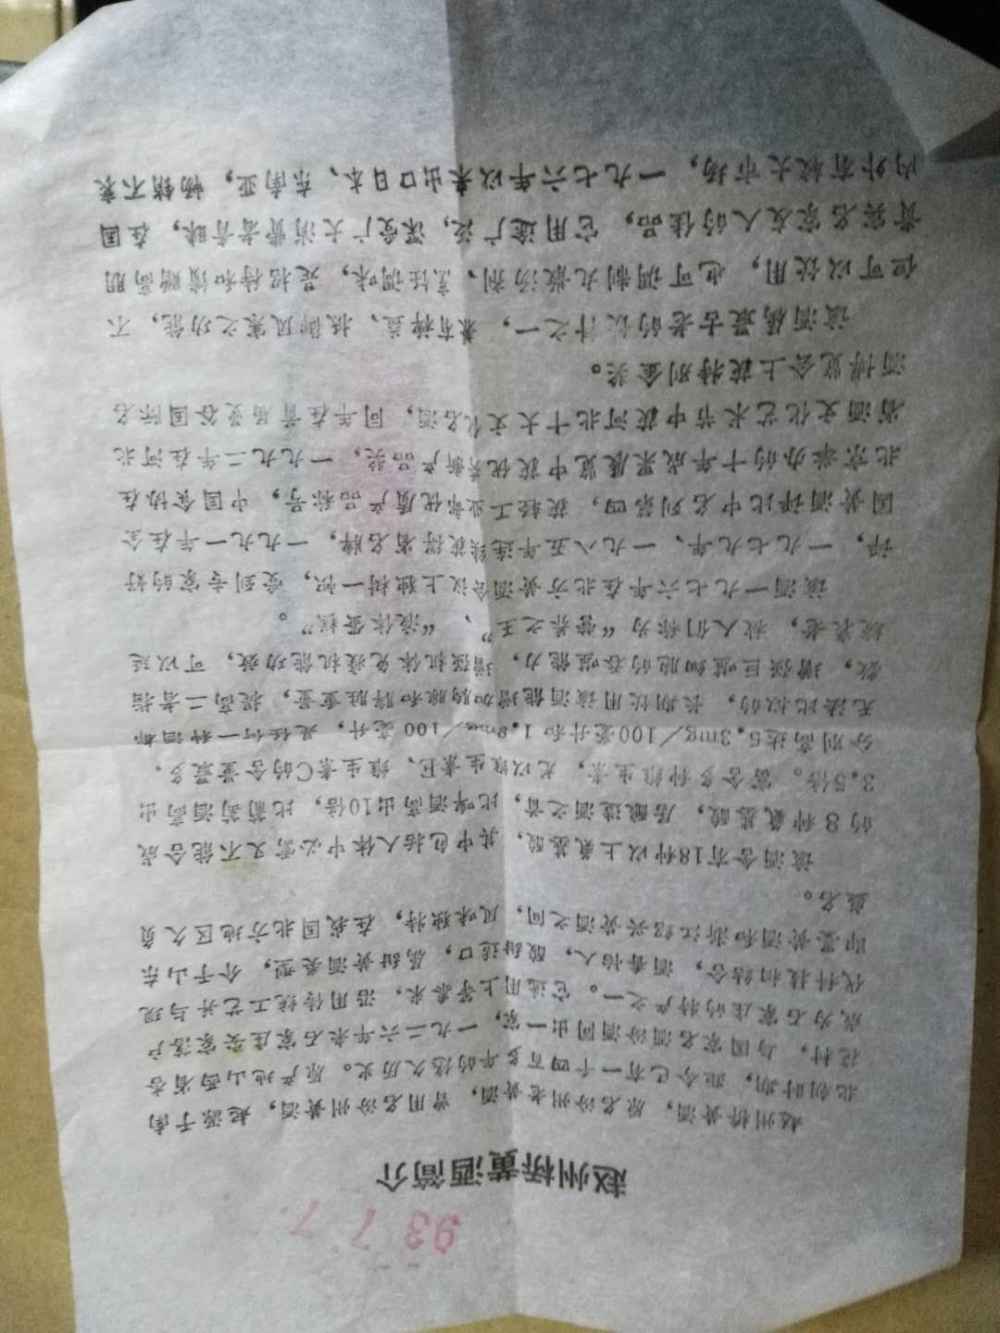 93 7 7
赵州桥黄酒简介
赵州桥黄酒，原名汾州老黄酒，曾用名汾州黄酒，起源于南
北朝时期，距今已有一千四百多年的悠久历史。原产地山西省杏
花村，与国家名酒汾酒同出一家，一九二六年来石家庄安家落户
成为石家庄的特产之一。它选用上等黍米，沿用传统工艺并与现
代科技相结合，酒香怡人，酸甜适口，属甜黄酒类型，介于山东
即墨黄酒和浙江绍兴黄酒之间，风味独特，在我国北方地区久负
盛名。
该酒含有18种以上氨基酸，其中包括人体中必需又不能合成
的8种氨基酸，居酿造酒之首，比啤酒高出10倍，比葡萄酒高出
3.5倍。富含多种维生素，尤以维生素E、维生素C的含量最多，
分别高达5.3mg／100毫升和1.8mg／100毫升，是任何一种酒都
无法比拟的，长期饮用该酒能增加胸腺和脾脏重量，提高二者指
数，增强巨噬细胞的吞噬能力，增强机体免疫机能功效，可以延
缓衰老，故人们称为“营养之王”、“液体蛋糕”。
该酒一九七六年在北方黄酒会议上独树一帜，受到专家的好
评，一九七九年、一九八五年连续获得省名牌，一九九一年在全
国黄酒评比中名列第四，获轻工业部优质产品称号，中国食协在
北京举办的十年成果展览中获优秀新产品奖，一九九二年在河北
省酒文化艺术节中获河北十大文化名酒，同年在首届曼谷国际名
酒博览会上获特别金奖。
该酒为最古老的饮料之一，素有裨益、抵御风寒之功能，不
但可以饮用，也可调制丸散汤剂、烹饪调味，是招待和馈赠高朋
贵宾名家友人的佳品，它用途广泛，深受广大消费者青睐，在国
内外有较大市场，一九七六年以来出口日本、东南亚，畅销不衰